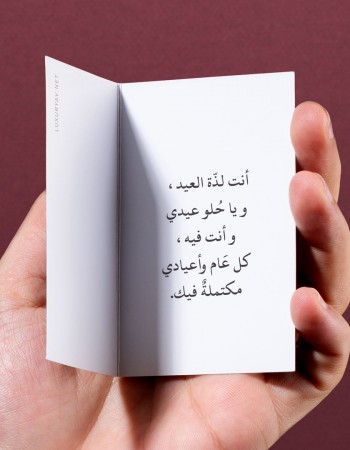 LUXURYBY.NET
أنت لذّة العيد ،
و يا حُلو عيدي
و أنت فيه ،
كل عَام وأعيادي
مكتملةٌ فيك.